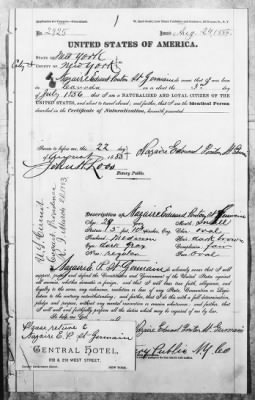 No. 2925 Issued Aug. 24 1885.
UNITED STATES OF AMERICA.
STATE OF New York
City & COUNTY OF New York
I Nazaire Edward Ponton St. Germain do swear that I was born
in Canada on the 3d day
of July 1856 that I am a NATURALIZED AND LOYAL CITIZEN OF THE
UNITED STATES, and about to travel abroad; and further, that I am the Identical Person
described in the Certificate of Naturalization, herewith presented.
Sworn to before me, this 22 day
of August 1885
Nazaire Edward Ponton St. Germain
Notary Public.
U.S. Circuit
Court, Providence
R. I. March
Description of Nazaire Edward Ponton St. Germain
Age: 29
Stature: 5 ft. 10
Forehead: Medium
Eyes: dark Gray
Nose: regular
Mouth: Small
Chin: oval
Hair: dark brown
Complexion: fair
Face: oval
I, Nazaire E. P. St. Germain do solemnly swear that I will
support, protect and defend the Constitution and Government of the United States against
all enemies, whether domestic or foreign; and that I will bear true faith, allegiance, and
loyalty to the same, any ordinance, resolution or law of any State, Convention or Legislature
to the contrary notwithstanding; and further, that I do this with a full determination,
pledge and purpose, without any mental reservation or evasion whatsoever; and further, that
I will well and faithfully perform all the duties which may be required of me by law.
So help me God.
Nazaire Edward Ponton St. Germain
Notary Public N.Y. Co
Please return to
Nazaire E. P. St. Germain
CENTRAL HOTEL,
WEST STREET,
NEW YORK.